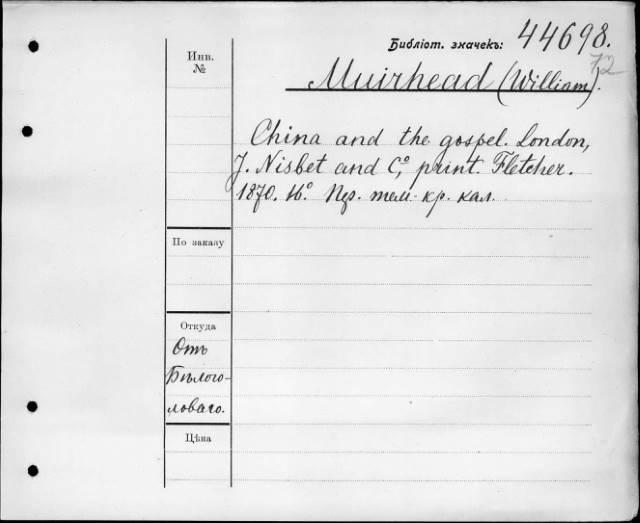 Библіот. значекъ: 44698.
72
Инв.
№
Muirhead (William).
China and the gospel. London,
J. Nisbet and Cº, print. Fletcher.
1870. 16º. Пер. тем. кр. кал.
По заказу
Откуда
Отъ
Бѣлого-
ловаго.
Цѣна